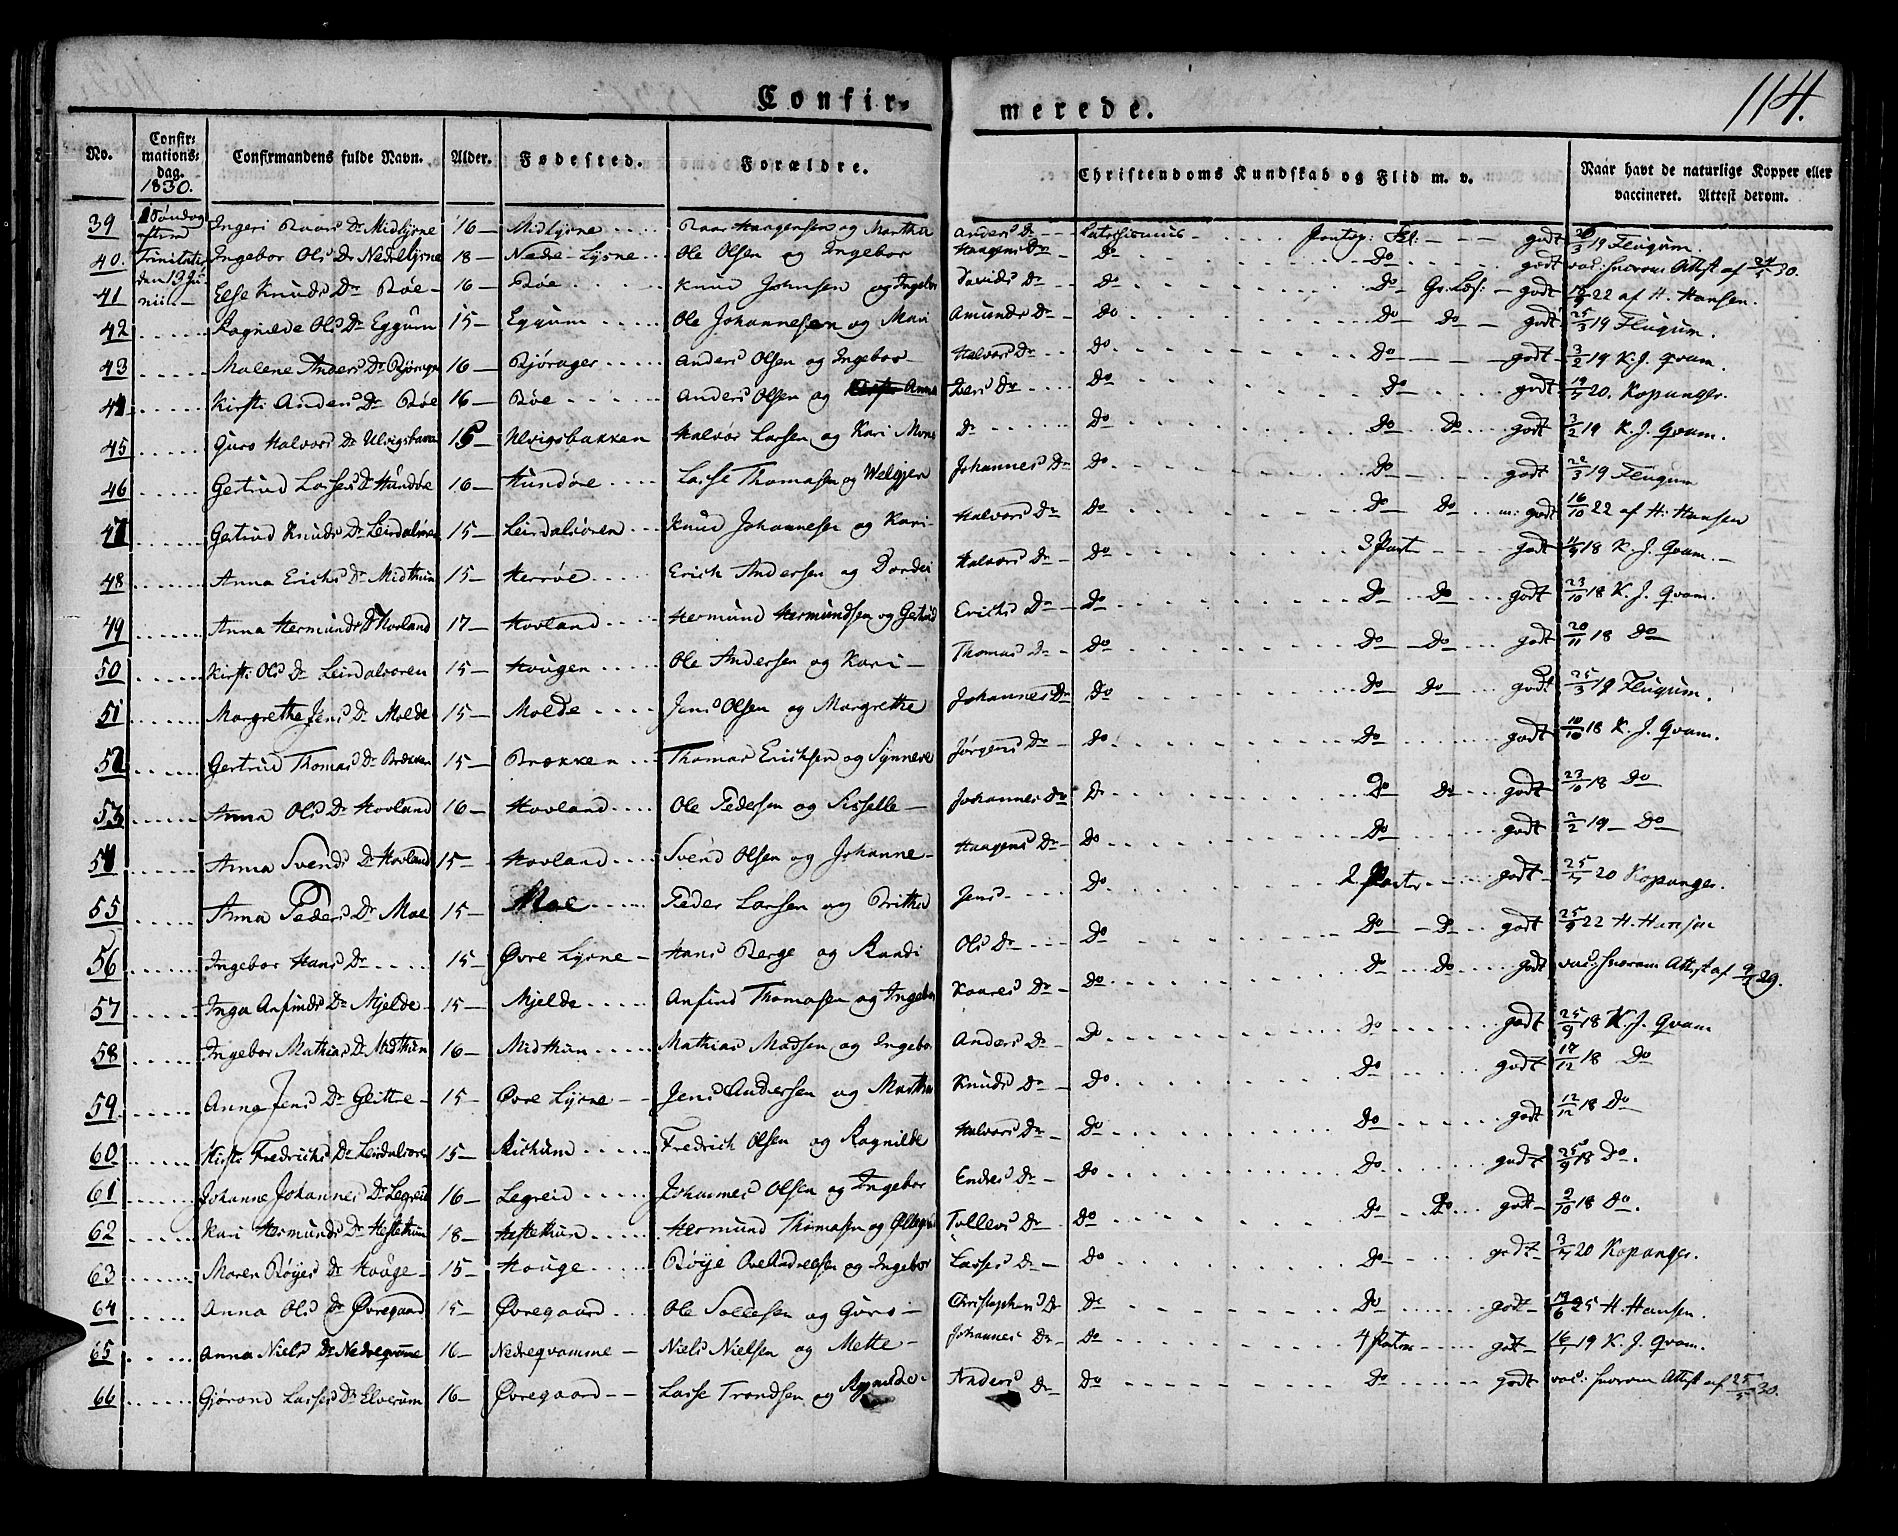 Confir- merede. 114.
No. Confir: mations: dag. 1830. Confirmandens fulde Navn. Alder. Fødested. Forældre. Christendoms Kundskab og Flid m. v. Naar havt de naturlige Kopper eller vaccineret. Attest derom.
39 Søndag Ingeri Roars Dr Midlysne 16 Midlysne Roar Haagensens og Martha Anders Dr Catechismus godt 19 Flugum.
40 Trinitatis Ingebor Ols Dr Nedrelysne 18 Nedre-Lysne Ole Olsen og Ingebor Haagens Dr Do Do godt Attest af 30.
41 Else Knuds Dr Røe 16 Røe Knud Johnsen og Ingebor Davids Dr Do Do godt 22 af H. Hansen.
42 Ragnilde Ols Dr Eggum 15 Eggum Ole Johannesen og Mari Amunds Dr Do Do Do godt 25/3 19 Flugum.
43 Malene Anders Dr 16 Bjørager Anders Olsen og Ingebor Halvors Dr Do Do godt 3/2 19 K. J. Qvam.
44 Kirsti Anders Dr Røe 16 Røe Anders Olsen og Anna Dr Do Do godt 20. Kopanger.
45 Guro Halvors Dr 15 Ulvigsbakken Halvor Larsen og Kari Mons Dr Do Do Do godt 3/2 19 K. J. Qvam.
46 Gertrud Lasses Dr Hundøre 16 Hundøre Lasse Thomasen og Johannes Dr Do Do godt 19 Flugum
47 Gertrud Knuds Dr 15 Leirdalsøren Knud Johannesen og Kari Halvors Dr Do Do Do godt 16/10 22 af H. Hansen
48 Anna Erichs Dr Midthun 15 Herrøe Erich Andersen og Dordei Halvors Dr Do 3 Part godt 18 K. J. Qvam.
49 Anna Hermunds Dr Hovland 17 Hovland Hermund Hermundsen og Gertrud Erichs Dr Do Do Do godt 23/10 18 K. J. Qvam.
50 Kirsti Ols Dr Leirdalsøren 15 Hougen Ole Andersen og Kari Thomas Dr Do Do Do godt 20/11 18 Do
51 Margrethe Jens Dr Molde 15 Molde Jens Olsen og Margrethe Johannes Dr Do Do Do godt 25/3 19 Flugum.
52 Gertrud Thomas Dr Brekken 15 Brekken Thomas Erichsen og Synneve Jørgens Dr Do Do godt 10/10 18 K. J. Qvam.
53 Anna Ols Dr Hovland 16 Hovland Ole Pedersen og Sisselle Johannes Dr Do Do Do godt 23/10 18 Do
54 Anna Svends Dr Hovland 15 Hovland Svend Olsen og Johanne Haagens Dr Do Do godt 2/2 19 Do
55 Anna Peders Dr Moe 15 Moe Peder Larsen og Britha Jens Do 2 Parter godt 20 Kopanger.
56 Ingebor Hans Dr 15 Øvre Lysne Hans Berge og Randi Ols Dr Do Do Do godt 22 H. Hansen
57 Inga Anfinds Dr Mjelde 15 Mjelde Anfind Thomasen og Ingebor Kaares Dr Do Do Do godt Attest af 29.
58 Ingebor Mathias Dr Midthun 16 Midthun Mathias Madsen og Ingebor Anders Dr Do Do godt 25/9 18 K. J. Qvam
59 Anna Jens Dr Geittre 15 Øvre Lysne Jens Andersen og Martha Knuds Dr Do Do godt 17/12 18 Do
60 Kirsti Fredrichs Dr Leirdalsøren 15 Fredrich Olsen og Ragnilde Halvors Dr Do Do godt 12/12 18 Do
61 Johanne Johannes Dr Legreid 16 Legreid Johannes Olsen og Ingebor Endres Dr Do Do godt 25/9 18 Do.
62 Kari Hermunds Dr Heftethun 18 Heftethun Hermund Thomasen og Tollevs Dr Do Do Do godt 18 Do.
63 Maren Bøyes Dr Houge 15 Houge Bøye og Ingebor Lasses Dr Do Do godt 20 Kopanger.
64 Anna Ols Dr Øvregaard 15 Øvregaard Ole og Guro Christophers Dr Do Do godt 25 H. Hansen.
65 Anna Niels Dr 16 Nedreqvamme Niels Nielsen og Mette Johannes Dr Do 4 Parter godt 19 K. J. Qvam.
66 Gjørond Lasses Dr Elverum 16 Øvregaard Lasse Trondsen og Ragnilde Anders Dr Do Do godt Attest af 30.